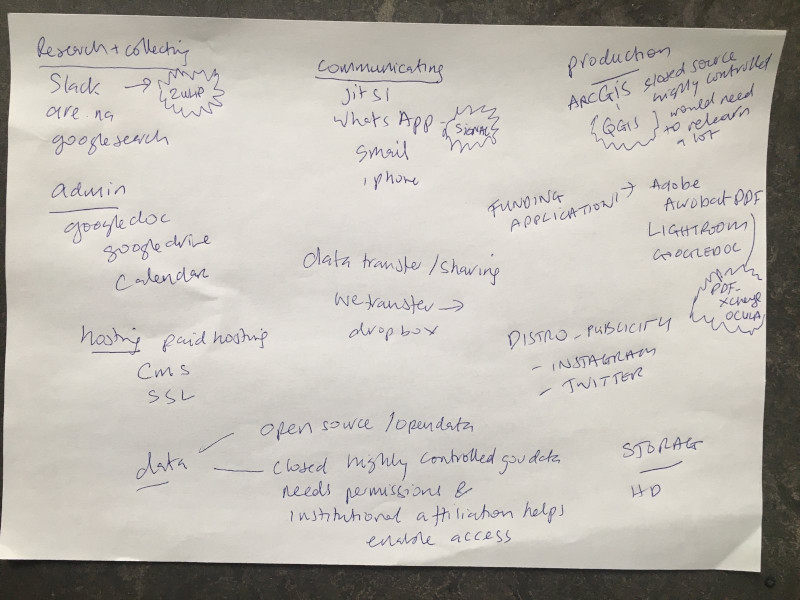 Research + collecting
Slack → ZULIP
are.na
googlesearch
Communicating
jitsi
WhatsApp - SIGNAL
gmail
iphone
production
ArcGIS closed source
highly controlled
QGIS would need
to relearn
a lot
admin
googledoc
googledrive
Calendar
FUNDING
APPLICATION → Adobe
Acrobat PDF
LIGHTROOM
GOOGLEDOC
PDF-
Xchange
OCULAR
data transfer / sharing
wetransfer →
dropbox
hosting paid hosting
CMS
SSL
DISTRO - PUBLICITY
- INSTAGRAM
- TWITTER
data
open source / opendata
closed highly controlled govdata
needs permissions &
institutional affiliation helps
enable access
STORAGE
HD